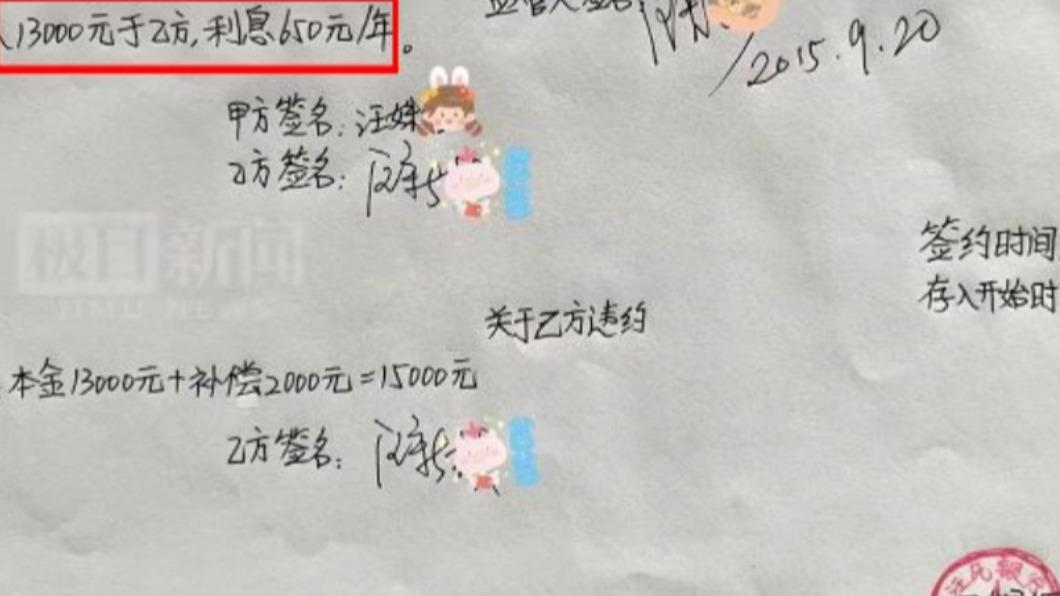 13000元于乙方,利息650元/年。
监管人签名:
2015.9.20
甲方签名:汪姝
乙方签名:
极目新闻
JIMU NEWS
签约时间
存入开始时
关于乙方违约
本金13000元+补偿2000元=15000元
乙方签名: